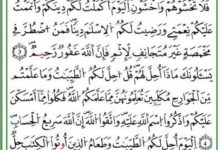 فَلَا تَخْشَوْهُمْ وَاخْشَوْنِ الْيَوْمَ أَكْمَلْتُ لَكُمْ دِينَكُمْ وَأَتْمَمْتُ
عَلَيْكُمْ نِعْمَتِى وَرَضِيتُ لَكُمُ الْإِسْلَٰمَ دِينًا فَمَنِ اضْطُرَّ فِى
مَخْمَصَةٍ غَيْرَ مُتَجَانِفٍ لِّإِثْمٍ فَإِنَّ اللَّهَ غَفُورٌ رَّحِيمٌ ٣
يَسْـَٔلُونَكَ مَاذَا أُحِلَّ لَهُمْ قُلْ أُحِلَّ لَكُمُ الطَّيِّبَٰتُ وَمَا عَلَّمْتُم
مِّنَ الْجَوَارِحِ مُكَلِّبِينَ تُعَلِّمُونَهُنَّ مِمَّا عَلَّمَكُمُ اللَّهُ فَكُلُوا مِمَّا أَمْسَكْنَ
عَلَيْكُمْ وَاذْكُرُوا اسْمَ اللَّهِ عَلَيْهِ وَاتَّقُوا اللَّهَ إِنَّ اللَّهَ سَرِيعُ الْحِسَابِ ٤
الْيَوْمَ أُحِلَّ لَكُمُ الطَّيِّبَٰتُ وَطَعَامُ الَّذِينَ أُوتُوا الْكِتَٰبَ حِلٌّ